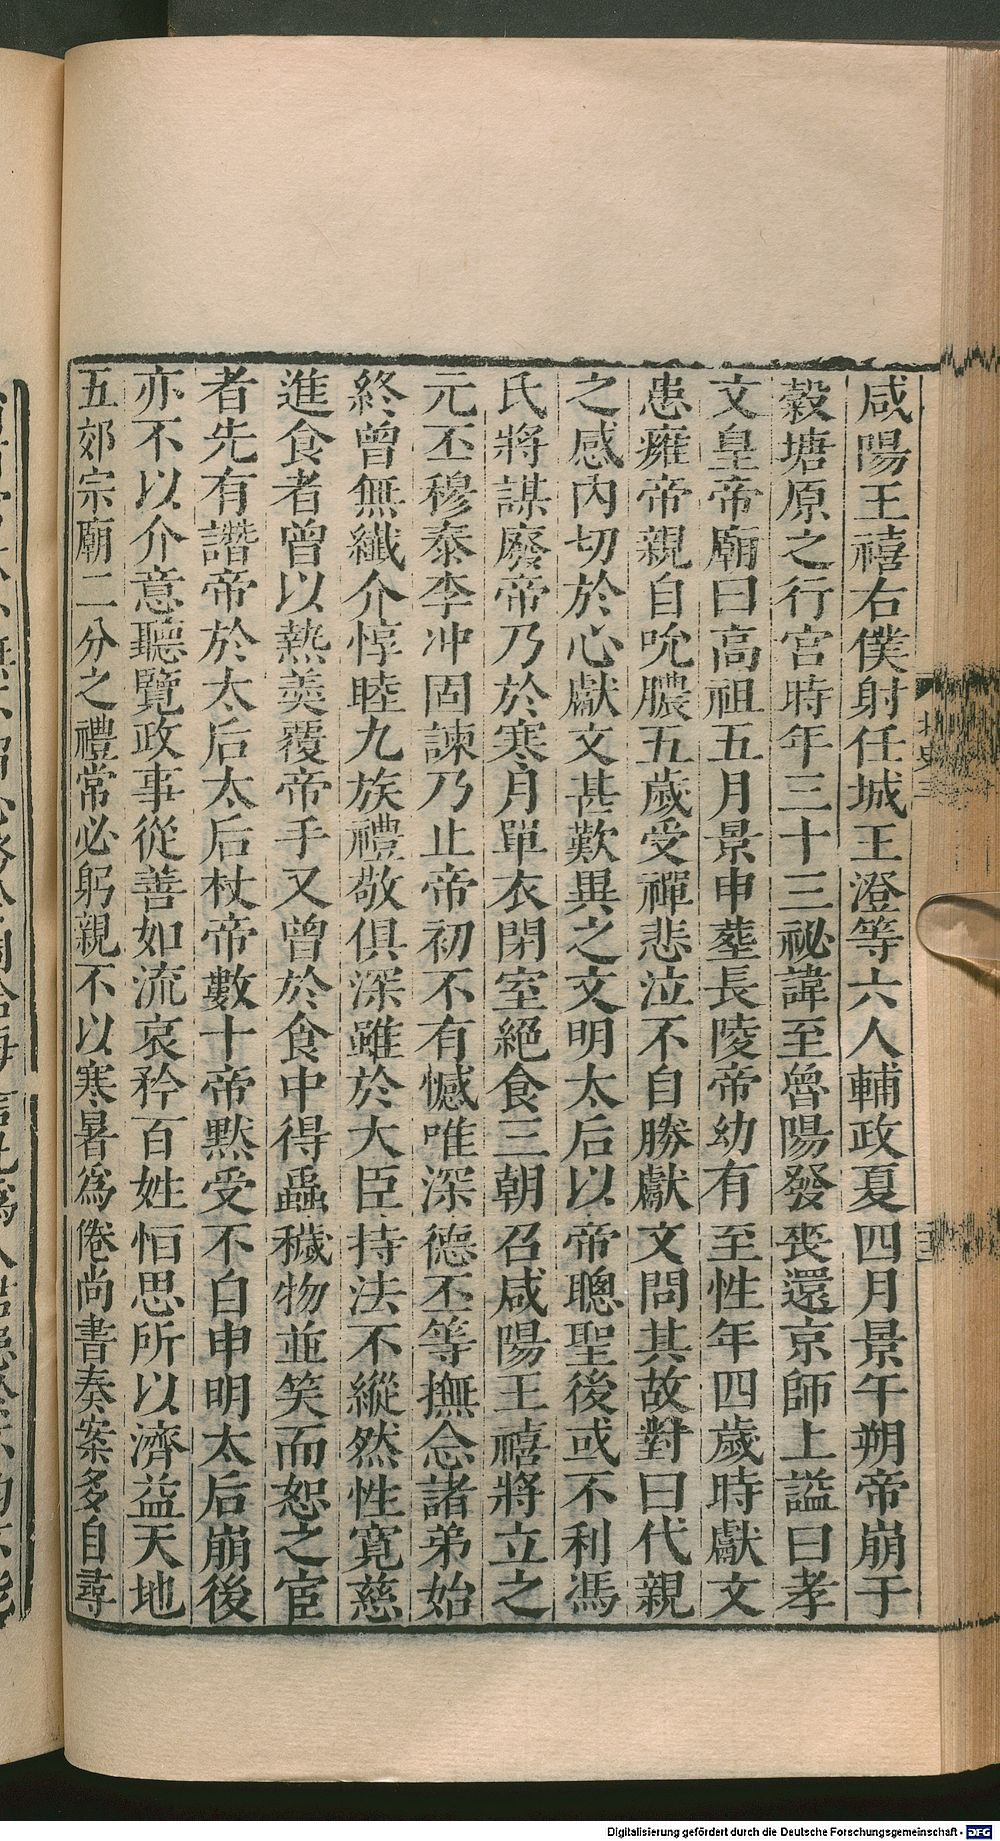 咸陽王禧右僕射任城王澄等六人輔政夏四月景午朔帝崩于
穀塘原之行宮時年三十三祕諱至魯陽發喪還京師上謚曰孝
文皇帝廟曰高祖五月景申葬長陵帝幼有至性年四歲時獻文
患癰帝親自吮膿五歲受禪悲泣不自勝獻文問其故對曰代親
之感內切於心獻文甚歎異之文明太后以帝聰聖後或不利馮
氏將謀廢帝乃於寒月單衣閉室絕食三朝召咸陽王禧將立之
元丕穆泰李冲固諫乃止帝初不有憾唯深德丕等撫念諸弟始
終曾無纖介惇睦九族禮敬俱深雖於大臣持法不縱然性寬慈
進食者曾以熱羹覆帝手又曾於食中得蟲穢物並笑而恕之宦
者先有譖帝於太后太后杖帝數十帝默受不自申明太后崩後
亦不以介意聽覽政事從善如流哀矜百姓恒思所以濟益天地
五郊宗廟二分之禮常必躬親不以寒暑為倦尚書奏案多自尋
北史三
Digitalisierung gefördert durch die Deutsche Forschungsgemeinschaft - DFG